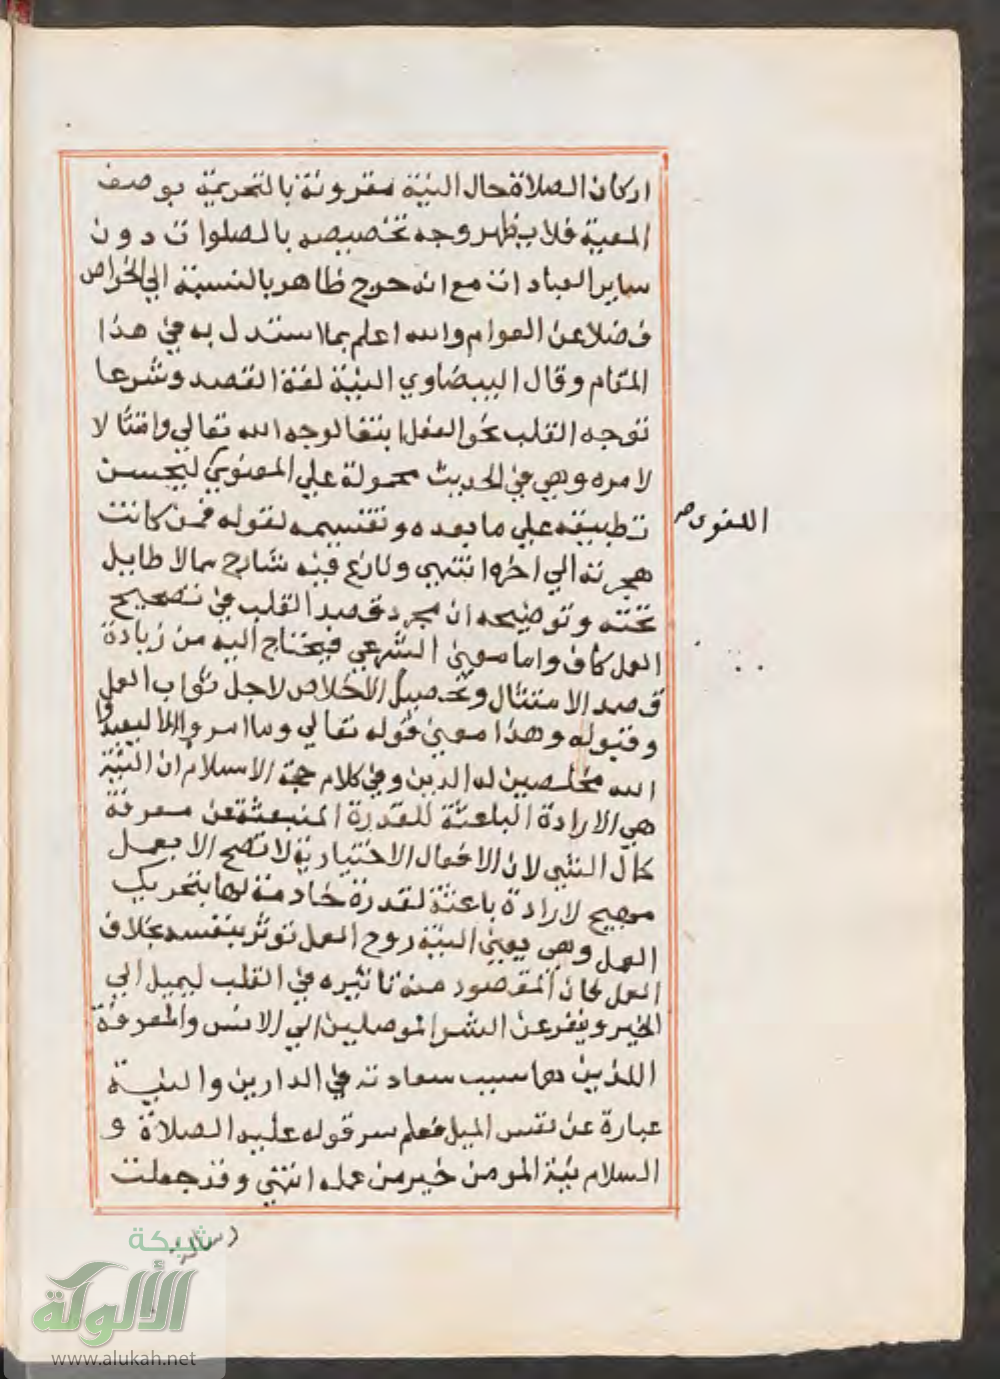 اركان الصلاة حال النية مقرونة بالتحريمة بوصف
المعية فلا يظهر وجه تخصيصه بالصلوات دون
ساير العبادات مع انه حرج ظاهر بالنسبة الي الخواص
فضلا عن العوام والله اعلم بما استدل به في هذا
المقام وقال البيضاوي النية لغة القصد وشرعا
توجه القلب نحو الفعل ابتغا لوجه الله تعالي وامتثالا
لامره وهي في الحديث محمولة علي المعنوي ليحسن
تطبيقه علي ما بعده وتقسيمه لقوله فمن كانت
اللغوي صح
هجرته الي اخره انتهي ونازع فيه شارح بما لا طايل
تحته وتوضيحه ان مجرد قصد القلب في تصحيح
العمل كاف واما معني الشرعي فيحتاج اليه من زيادة
قصد الامتثال وتحصيل الاخلاص لاجل ثواب العمل
وقبوله وهذا معني قوله تعالي وما امروا الا ليعبدوا
الله مخلصين له الدين وفي كلام حجة الاسلام ان النية
هي الارادة الباعثة للقدرة المنبعثة عن معرفة
كمال الشي لان الافعال الاختيارية لا تصح الا بعمل
مهيج لارادة باعثة لقدرة خادمة لها بتحريك
العمل وهي يعني النية روح العمل توثر بنفسه بخلاف
العمل فان المقصود منه تاثيره في القلب ليميل الي
الخير وينفر عن الشر الموصلين الي الانس والمعرفة
اللذين هما سبب سعادته في الدارين والنية
عبارة عن نفس الميل فعلم سر قوله عليه الصلاة و
السلام نية المومن خير من عمله انتهي وقد جعلت
رسالة
شبكة
الألوكة
www.alukah.net